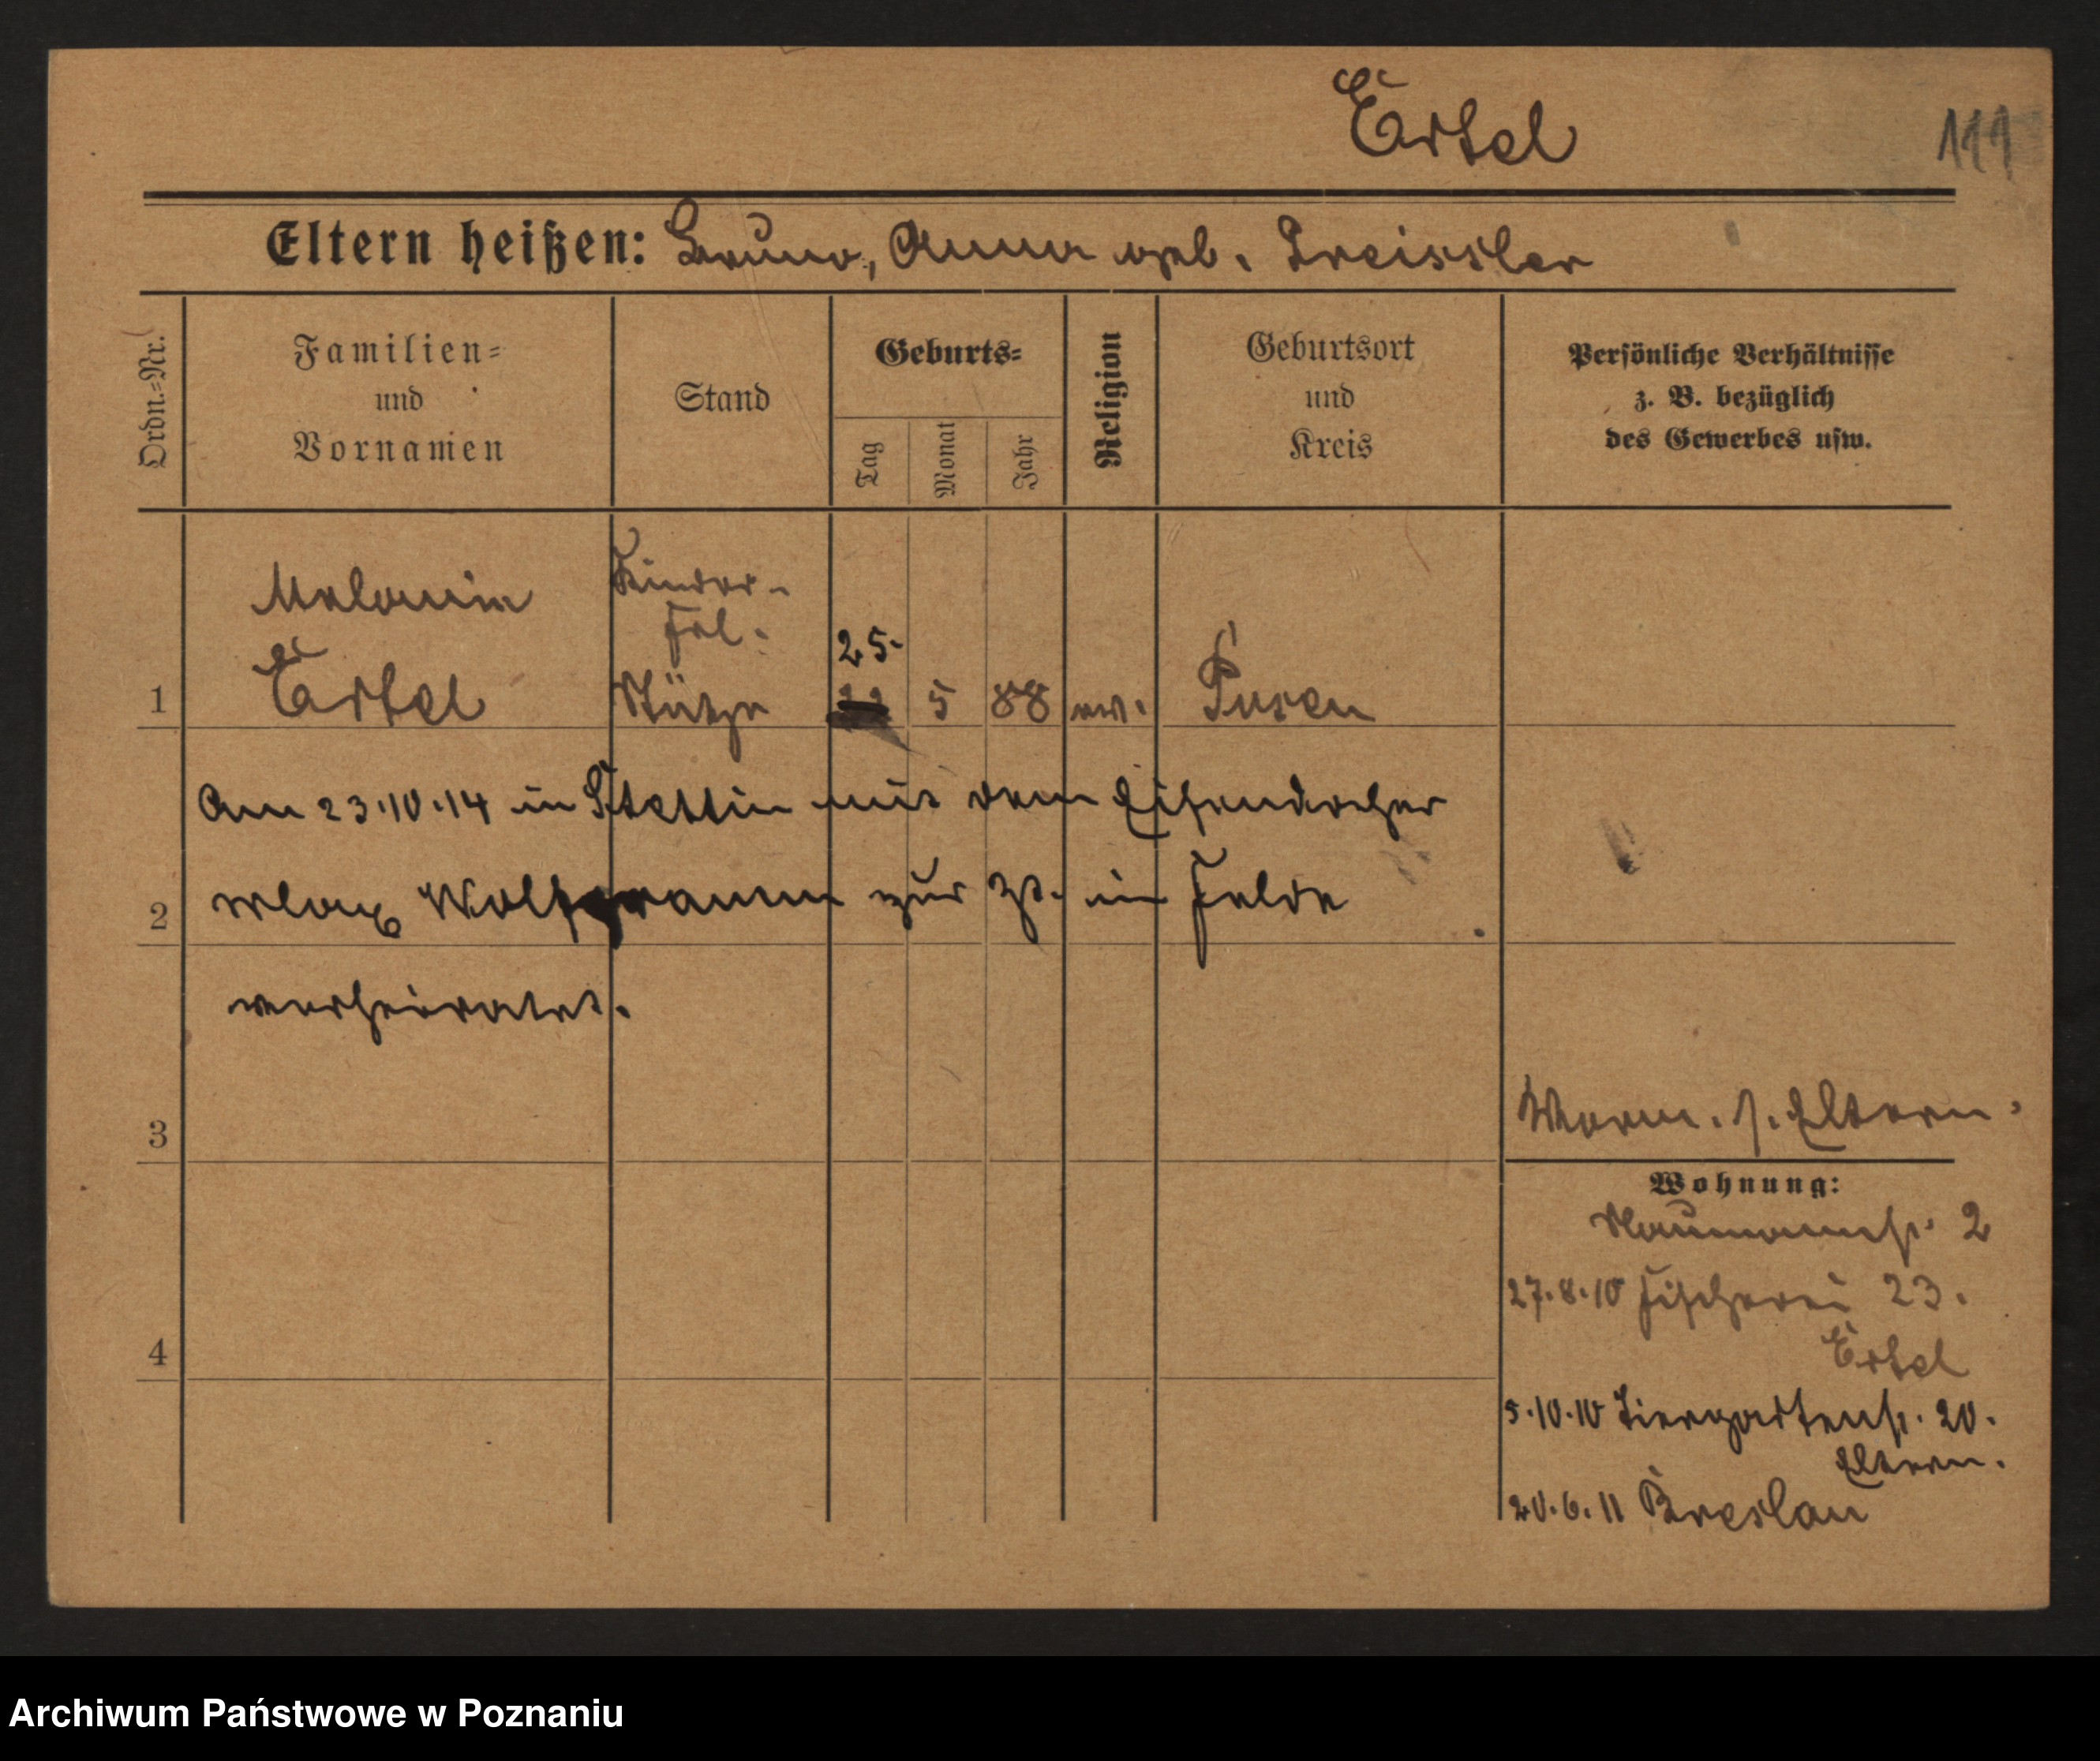 Ertel
111
Eltern heißen: Bruno, Anna geb. Preissler
Ordn.-Nr.
Familien-
und
Vornamen
Stand
Geburts-
Tag
Monat
Jahr
Religion
Geburtsort
und
Kreis
Persönliche Verhältnisse
z. B. bezüglich
des Gewerbes usw.
Melanie
Kinder-
frl.
25.
1 Ertel Stütze 5 88 ev. Posen
Am 23.10.14 in Stettin mit dem Eisendreher
2 Wolfgramm zur Zt. im Felde
verheiratet.
3
Vorm. s. Eltern.
Wohnung:
Naumannstr. 2
27.8.10 Fischerei 23.
Ertel
4
5.10.10 Tiergartenstr. 20.
Eltern.
20.6.11 Breslau
Archiwum Państwowe w Poznaniu